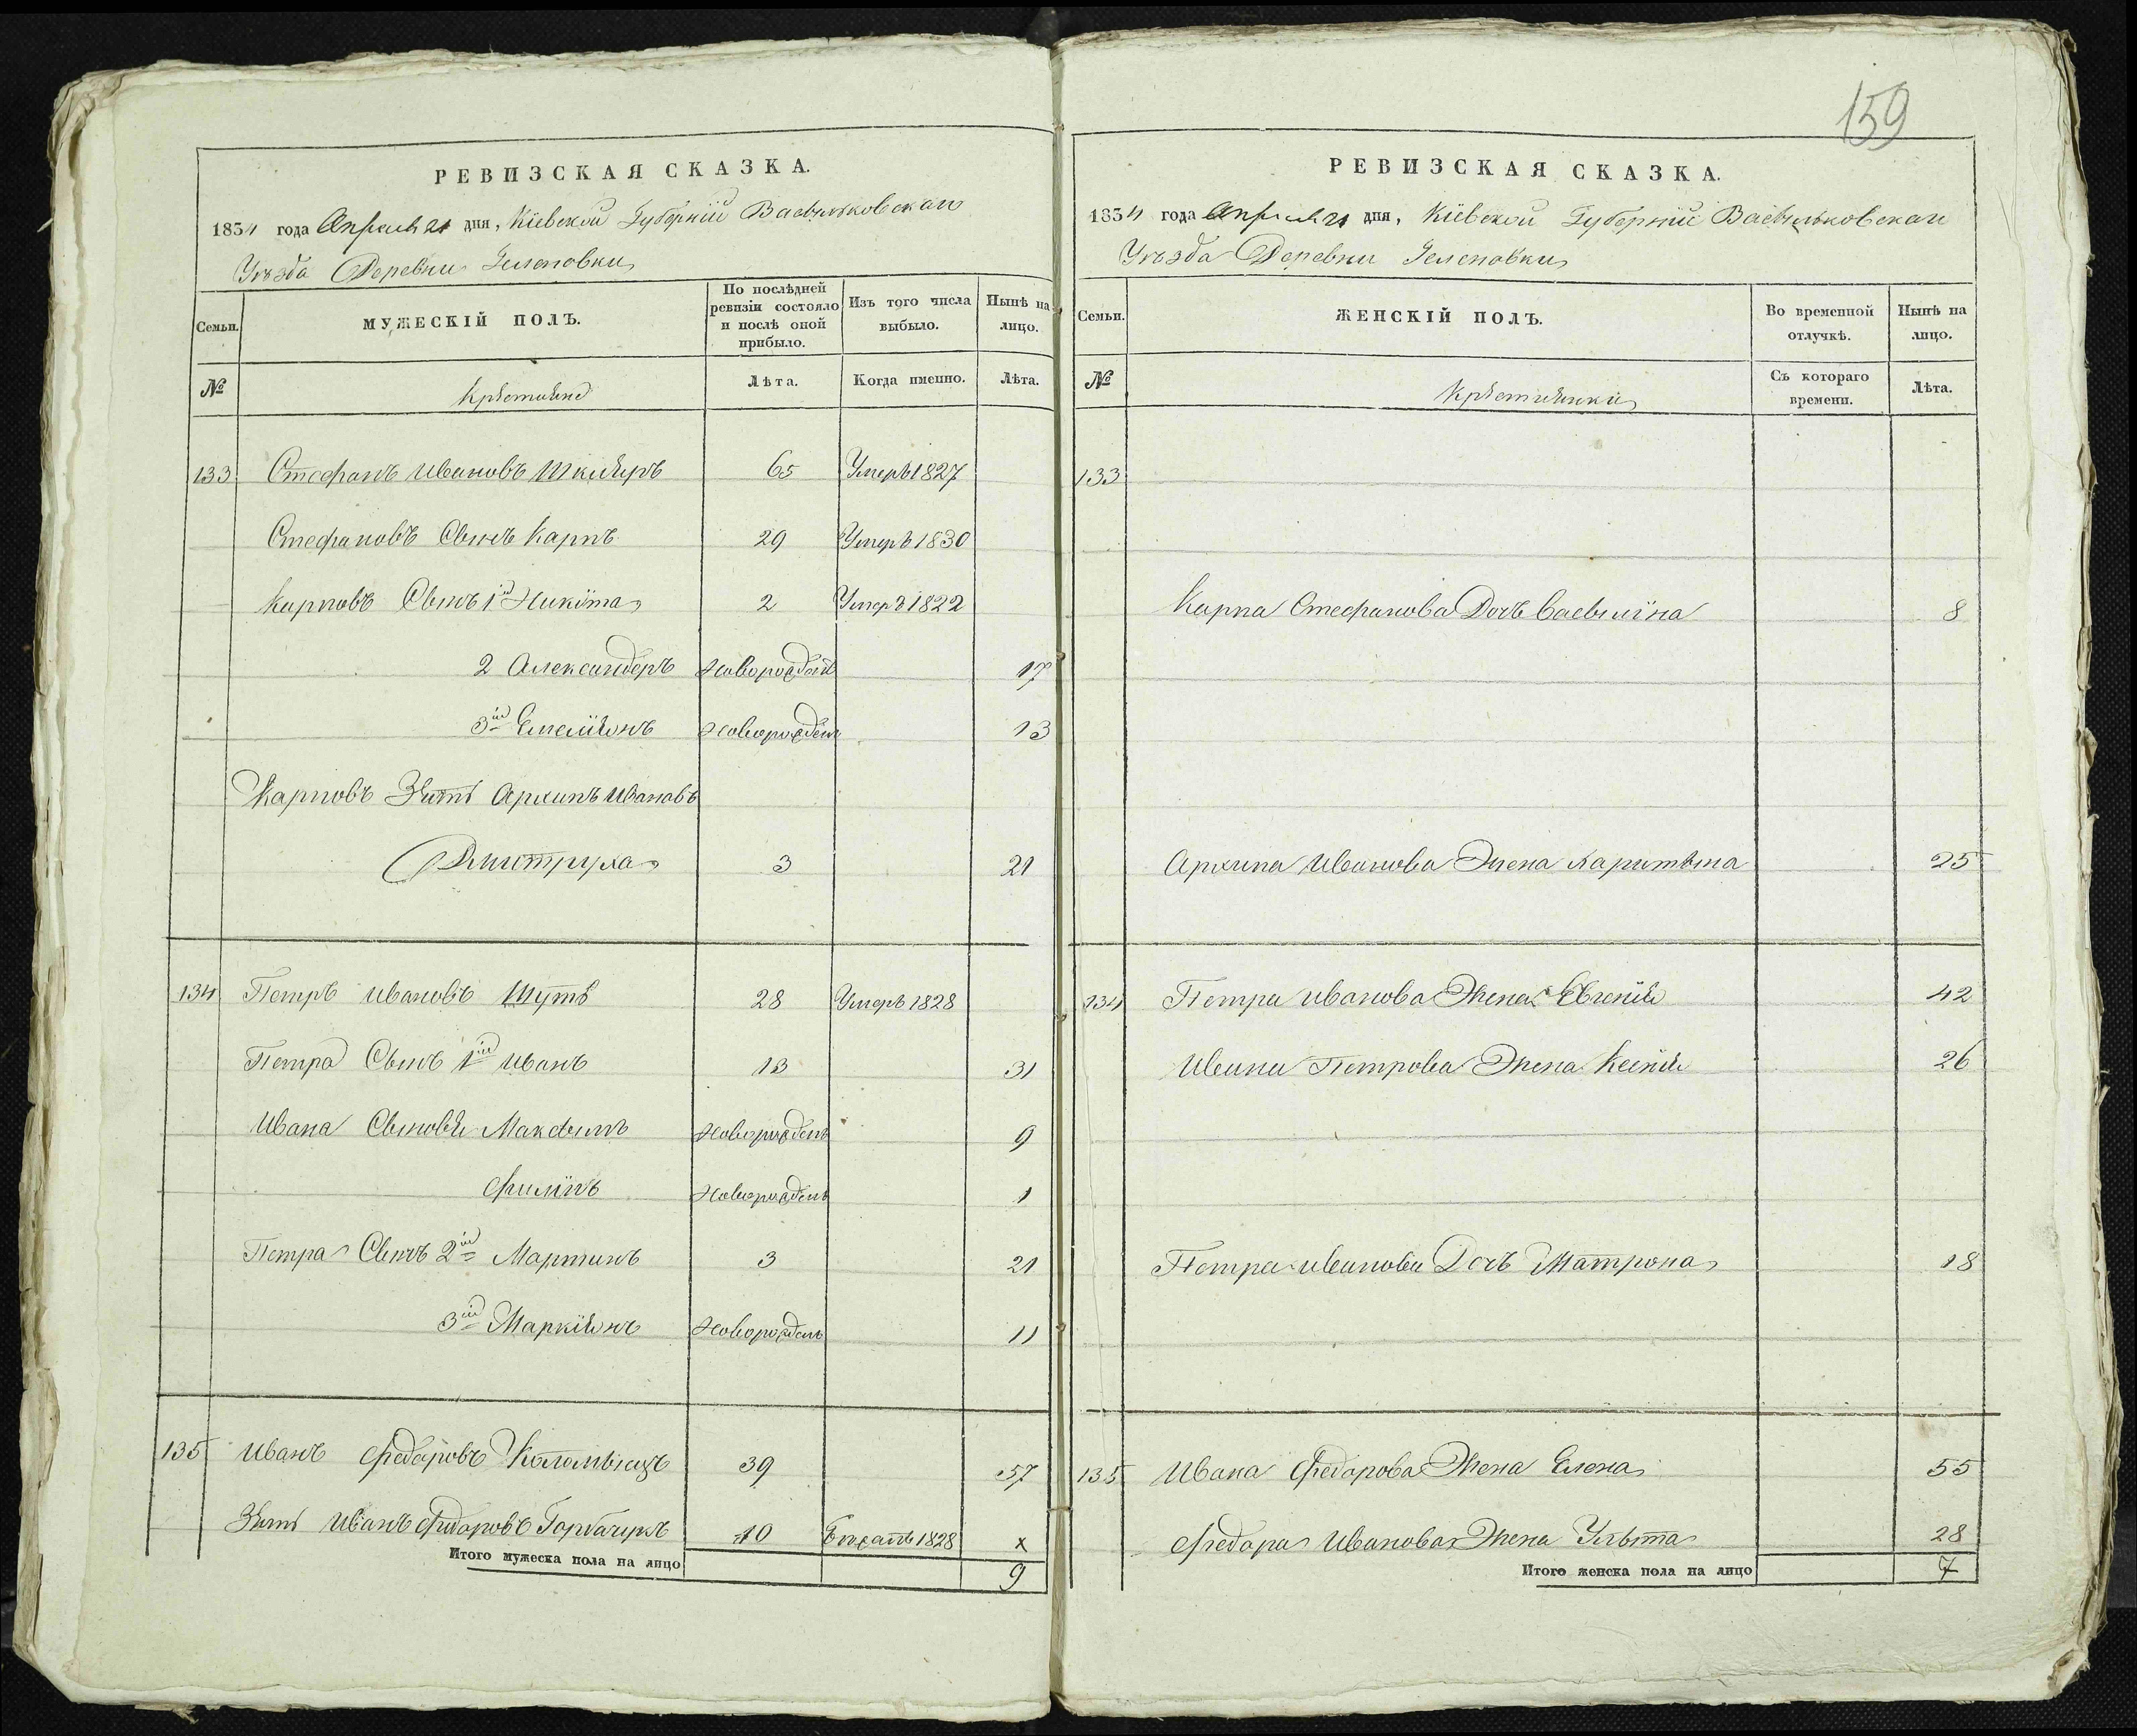 159
РЕВИЗСКАЯ СКАЗКА.
1834 года Апреля 21 дня, Кіевской Губерніи Васыльковскаго
Уѣзда Деревни
Семьи.
МУЖЕСКІЙ ПОЛЪ.
По послѣдней ревизіи состояло и послѣ оной прибыло.
Изъ того числа выбыло.
Нынѣ на лицо.
№
Крѣстьяне
Лѣта.
Когда именно.
Лѣта.
133 Стефанъ Ивановъ Шкляръ 65 Умеръ 1827
Стефановъ Сынъ Карпъ 29 Умеръ 1830
Карповъ Сынъ 1й Никита 2 Умеръ 1822
2 Александеръ Новорожденъ 17
3й Емеліянъ Новорожденъ 13
Карповъ Зять Архипъ Ивановъ
Дмитруха 3 21
134 Петръ Ивановъ Шуть 28 Умеръ 1828
Петра Сынъ 1й Иванъ 13 31
Ивана Сыновья Максымъ Новорожденъ 9
Филипъ Новорожденъ 1
Петра Сынъ 2й Мартинъ 3 21
3й Маркіянъ Новорожденъ 11
135 Иванъ Федоровъ Коломыецъ 39 57
Зять Иванъ Федоровъ Горбачукъ 10 1828 x
Итого мужеска пола на лицо 9
РЕВИЗСКАЯ СКАЗКА.
1834 года Апреля 21 дня, Кіевской Губерніи Васыльковскаго
Уѣзда Деревни
Семьи.
ЖЕНСКІЙ ПОЛЪ.
Во временной отлучкѣ.
Нынѣ на лицо.
№
Крѣстьянки
Съ котораго времени.
Лѣта.
133
Карпа Стефанова Дочь Васылина 8
Архипа Иванова Жена Харитына 25
134 Петра Иванова Жена Евгенія 42
Ивана Петрова Жена Ксенія 26
Петра Иванова Дочь Матрона 18
135 Ивана Федорова Жена Елена 55
Федора Иванова Жена Улыта 28
Итого женска пола на лицо 7